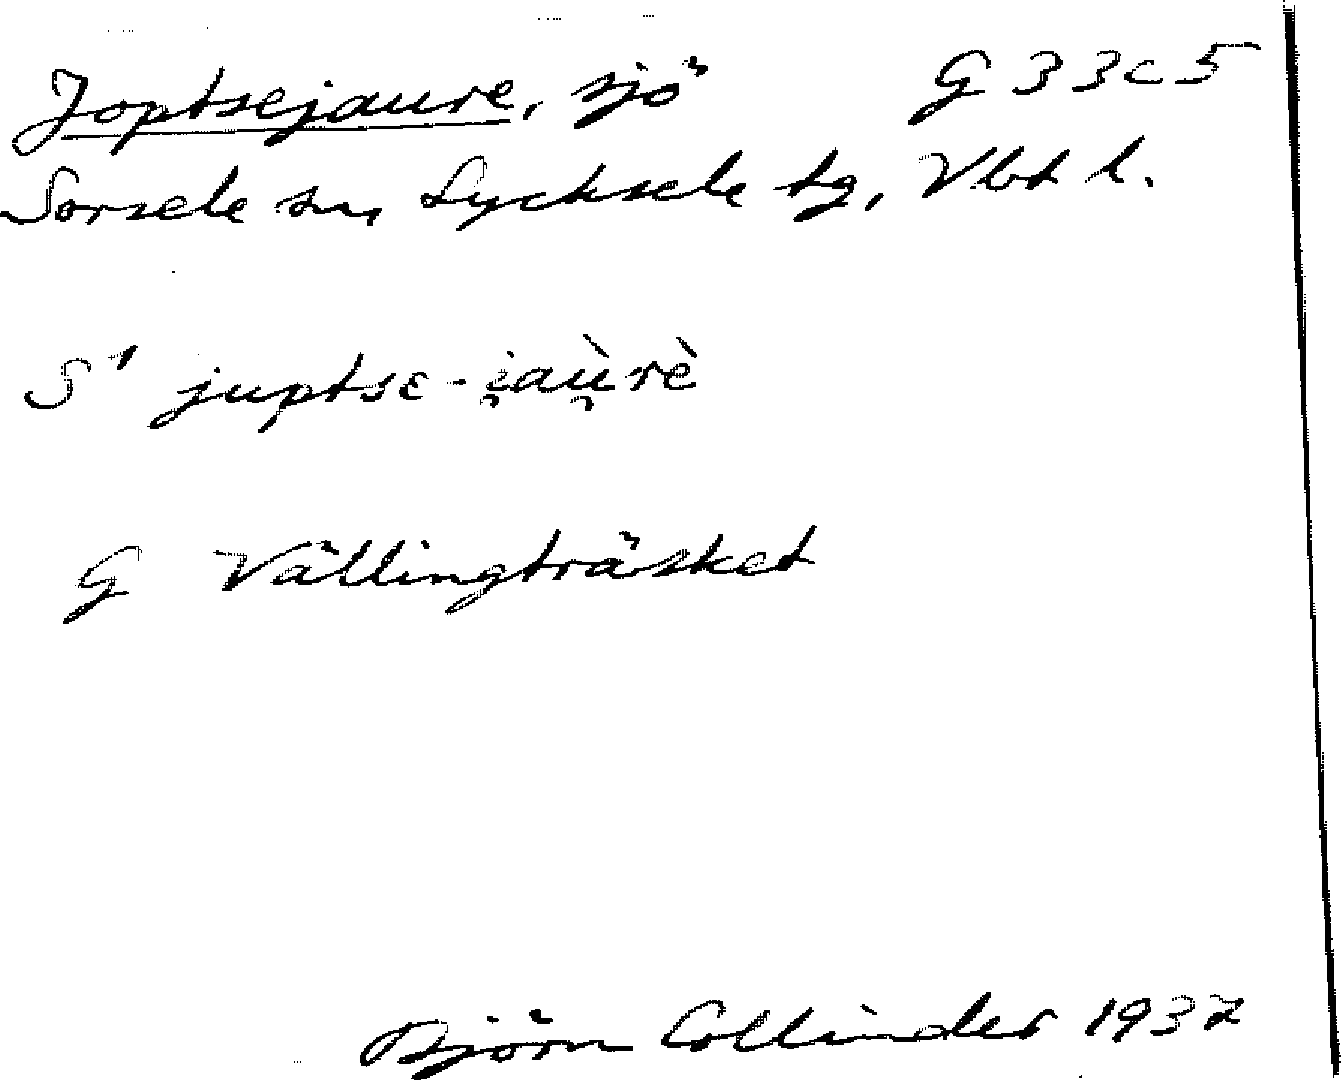 Joptsejaure, sjö G 33c5
Sorsele sn, Lycksele tg, Vbt l.
S' juptsɛ-i̯aù̯rè
G Vällingträsket
Björn Collinder 1937